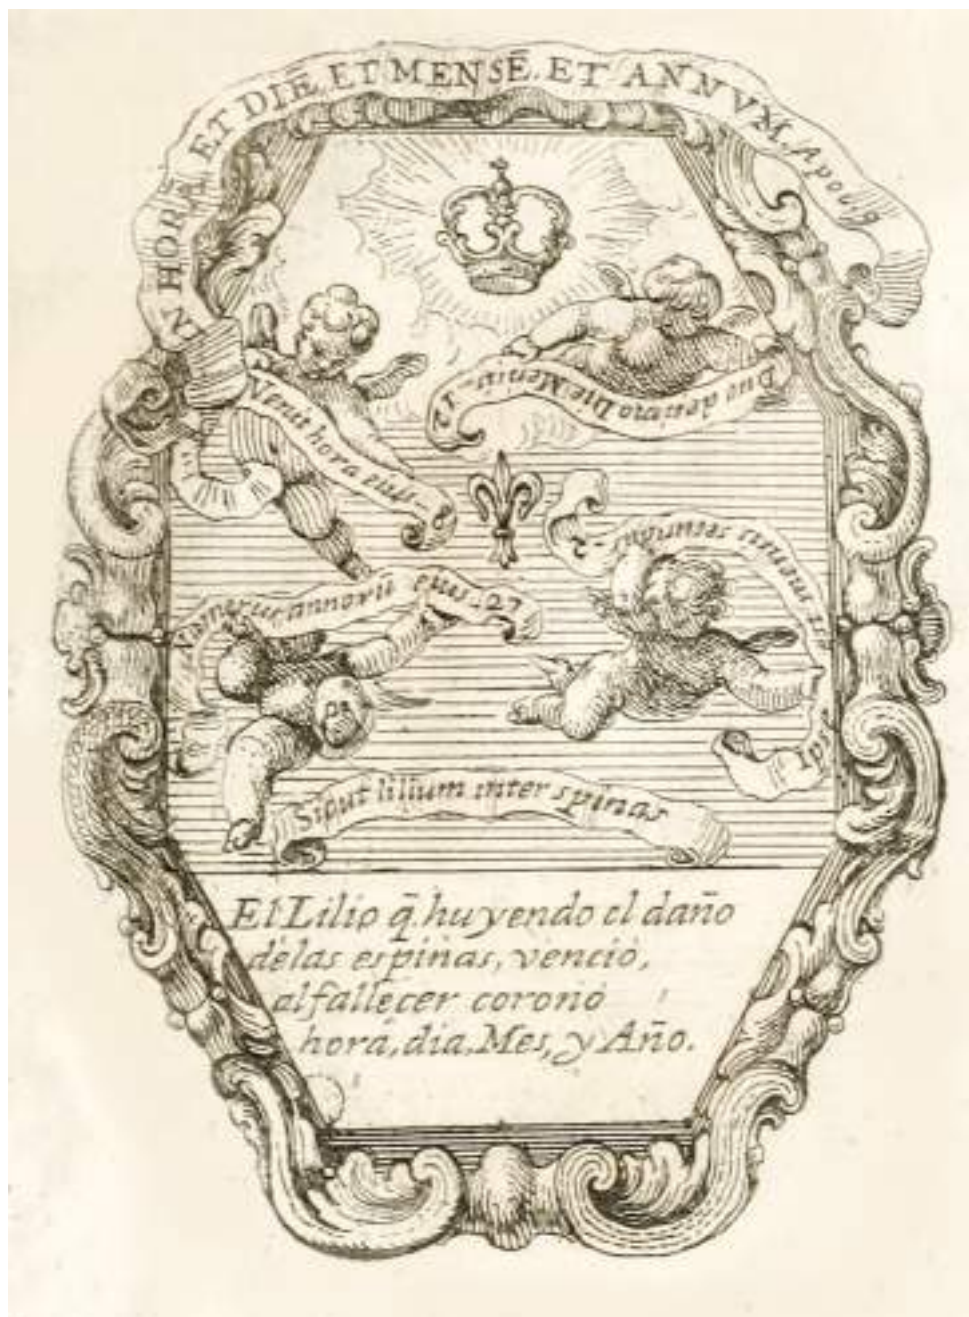 IN HORĀ, ET DIĒ, ET MENSĒ, ET ANNVM, Apoc. 9
Venit hora eius
Duodecimo Die Mensis 12
Numerus annorū eius 27
mensis secundus
Sicut lilium inter spinas
El Lilio q̄ huyendo el daño
delas espinas, venciò,
al fallecer coronò
hora, dia, Mes, y Año.